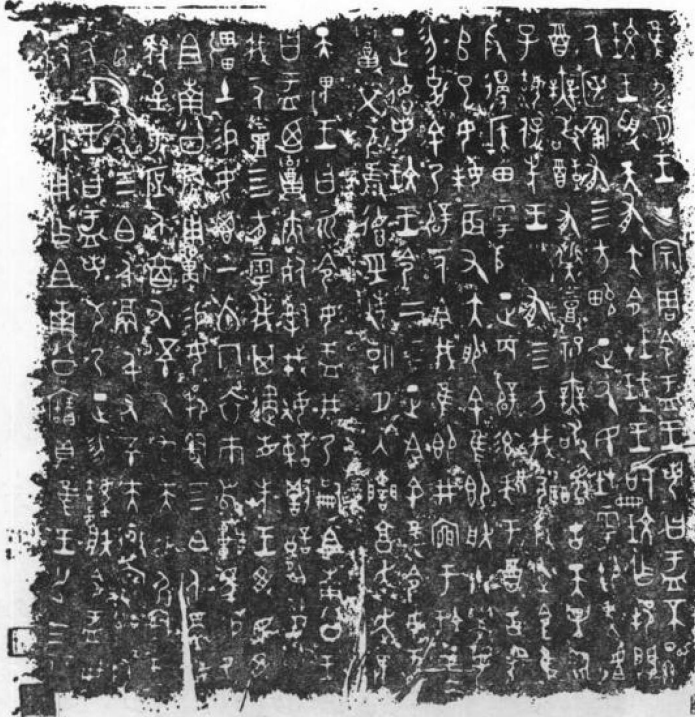 隹九月王才宗周令盂王若曰盂不顯
玟王受天有大令在珷王嗣玟乍邦闢
氒匿匍有四方畯正氒民在雩御事𠭯
酉無敢酖有祡烝祀無敢醻古天異臨
子灋保先王有四方我聞殷述令隹
殷邊侯田雩殷正百辟率肄于酉古喪
師已女妹辰又大服余隹即朕小學女
勿克余乃辟一人今我隹即井㐭于玟王
正德若玟王令二三正今余隹令女盂
召榮敬雍德巠敏朝夕入讕享奔走畏
天畏王曰而令女盂井乃嗣且南公王
曰盂迺召夾死司戎敏諫罰訟夙夕召
我一人烝四方雩我其遹省先王受民受
疆土易女鬯一卣冂衣巿舄車馬易乃
且南公旂用狩易女邦司四白人鬲自
馭至于庶人六百又五十又九夫易尸司王
臣十又三白人鬲千又五十夫自
氒土王曰盂若敬乃正勿灋朕令盂用
對王休用乍且南公寶鼎隹王廿又三祀